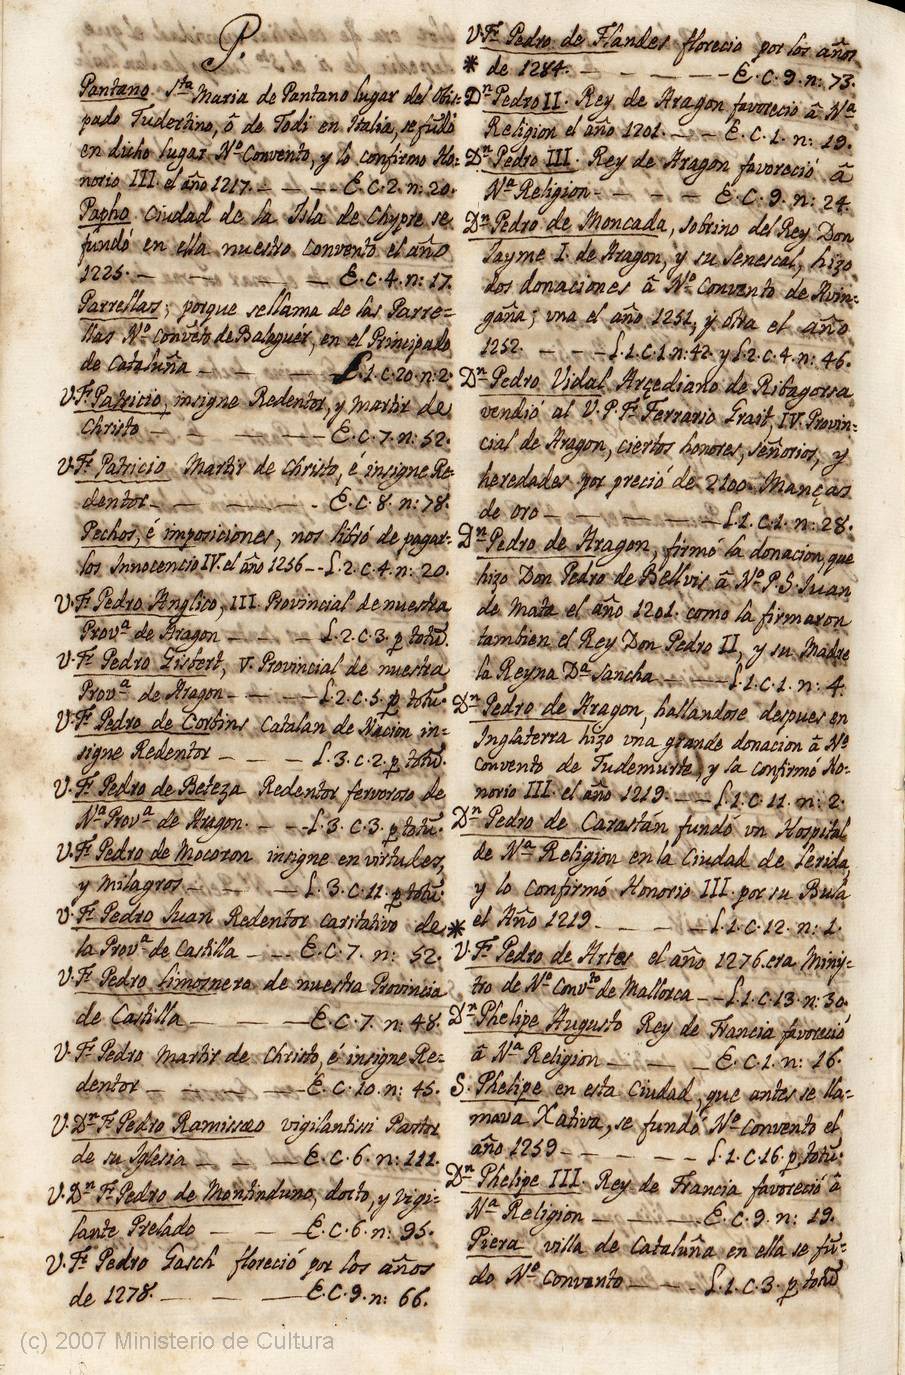 P.
Pantano. Sta Maria de Pantano lugar del Obis-
pado Tudertino, ô de Todi en Italia, se fũdó
en dicho lugar No Convento, y lo confirmo Ho-
norio III el año 1217. — — — E. C. 2. n: 20.
Papho Ciudad de la Isla de Chypre se
fundó en ella nuestro Convento el año
1225. — — — E. C. 4. n: 17.
Parrellas; porque sellama de las Parre-
llas No Convẽto de Balaguér, en el Principado
de Cataluña — — L. 1. C. 20. n: 2.
V. Fr. Patricio insigne Redentor, y Martir de
Christo — — — E. C. 7. n: 52.
V. Fr. Patricio Martir de Christo, é insigne Re-
dentor — — — E. C. 8. n: 78.
Pechos, é imposiciones, nos libró de pagar-
los Innocencio IV. el año 1256 — L. 2. C. 4. n: 20.
V. Fr. Pedro Anglico, III. Provincial de nuestra
Prova de Aragon — — — L. 2. C. 3. p totũ.
V. Fr. Pedro Gisbert, V. Provincial de nuestra
Prova de Aragon — — — L. 2. C. 5. p totũ.
V. Fr. Pedro de Corbins Catalan de Nacion in-
signe Redentor — — — L. 3. C. 2. p totũ.
V. Fr. Pedro de Beteza Redentor fervoroso de
Na Prova de Aragon. — — L. 3. C. 3. p totũ.
V. Fr. Pedro de Mocoron insigne en virtudes,
y Milagros — — — L. 3. C. 11. p totũ.
V. Fr. Pedro Juan Redentor caritativo de
la Prova de Castilla — — E. C. 7. n: 52.
V. Fr. Pedro limosnero de nuestra Provincia
de Castilla — — — E. C. 7. n: 48.
V. Fr. Pedro Martir de Christo, é insigne Re-
dentor — — — E. C. 10. n: 45.
V. Dn. Fr. Pedro Ramisseo vigilantissi Pastor
de su Iglesia — — — E. C. 6. n: 111.
V. Dn. Fr. Pedro de Montinduno, docto, y vigi-
lante Prelado — — — E. C. 6. n: 95.
V. Fr. Pedro Gasch floreció por los años
de 1278. — — — E. C. 9. n: 66.
V. Fr. Pedro de Flandes florecio por los años
* de 1284. — — — E. C. 9. n: 73.
Dn Pedro II. Rey de Aragon favoreció â Na
Religion el año 1201. — — E. C. 1. n: 19.
Dn Pedro III. Rey de Aragon favoreció â
Na Religion — — — E. C. 9. n: 24.
Dn Pedro de Moncada, sobrino del Rey Don
Jayme I. de Aragon, y su Senescal, hizo
dos donaciones â No Convento de Avin-
gaña; vna el año 1251, y otra el año
1252. — — — L. 1. C. 1. n: 42. y L. 2. C. 4. n: 46.
Dn Pedro Vidal Arçediano de Ribagorsa
vendió al V. P. Fr. Ferrario Grait, IV. Provin-
cial de Aragon, ciertos honores, señorios, y
heredades por preció de 2100. Manças
de oro — — — L. 1. C. 1. n: 28.
Dn Pedro de Aragon, firmó la donacion, que
hizo Don Pedro de Bellvis â No P. S. Juan
de Mata el año 1201. como la firmaron
tambien el Rey Don Pedro II, y su Madre
la Reyna Da Sancha — — — L. 1. C. 1. n: 4.
Dn Pedro de Aragon, hallandose despues en
Inglaterra hizo vna grande donacion â No
Convento de Tudemurte, y la confirmó Ho-
norio III. el año 1219. — — L. 1. C. 11. n: 2.
Dn Pedro de Carastán fundó vn Hospital
de Na Religion en la Ciudad de Lerida,
y lo confirmó Honorio III. por su Bula
* el Año 1219. — — — L. 1. C. 12. n: 1.
V. Fr. Pedro de Artes el año 1276. era Minis-
tro de No Convto de Mallorca — — L. 1. C. 13. n: 30.
Dn Phelipe Augusto Rey de Francia favoreció
â Na Religion — — — E. C. 1. n: 16.
S. Phelipe en esta Ciudad, que antes se lla-
mava Xativa, se fundó No Convento el
año 1259 — — — L. 1. C. 16. p totũ.
Dn Phelipe III. Rey de Francia favoreció â
Na Religion — — — E. C. 9. n: 19.
Piera villa de Cataluña en ella se fũ-
do No Convento — — — L. 1. C. 3. p totũ
(c) 2007 Ministerio de Cultura